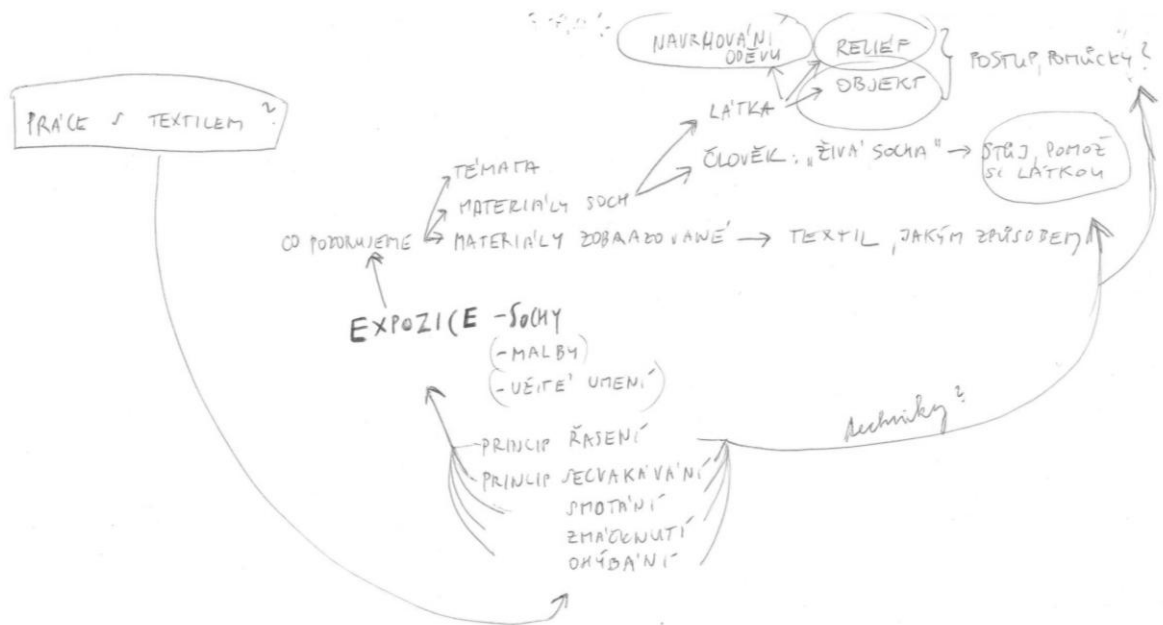 NAVRHOVÁNÍ
ODĚVU
RELIÉF
OBJEKT
POSTUP, POMŮCKY?
PRÁCE S TEXTILEM?
LÁTKA
ČLOVĚK: „ŽIVÁ SOCHA" → STŮJ, POMOZ
SI LÁTKOU
TÉMATA
MATERIÁLY SOCH
CO POZORUJEME
MATERIÁLY ZOBRAZOVANÉ → TEXTIL, JAKÝM ZPŮSOBEM
EXPOZICE - SOCHY
(- MALBY)
(- UŽITÉ UMENÍ)
techniky?
PRINCIP ŘASENÍ
PRINCIP SECVAKÁVÁNÍ
SMOTÁNÍ
ZMÁČKNUTÍ
OHÝBÁNÍ